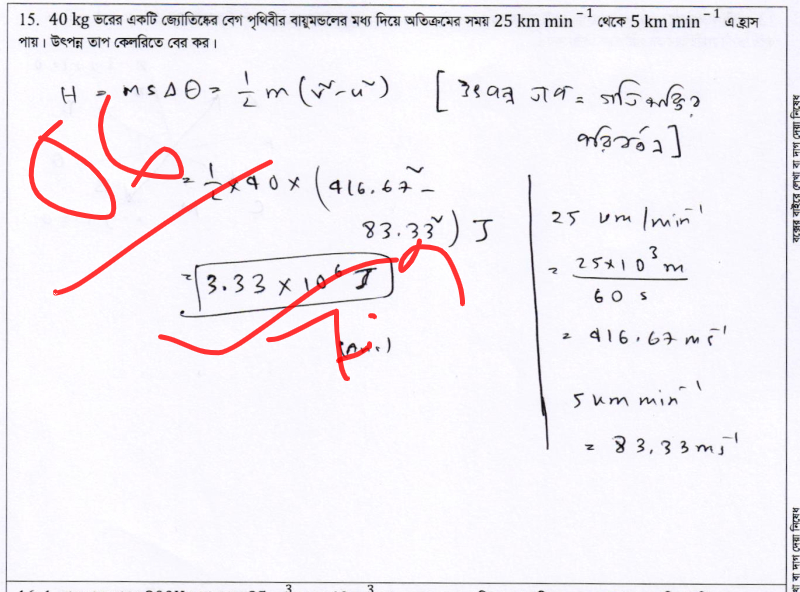 15. 40 kg ভরের একটি জ্যোতিষ্কের বেগ পৃথিবীর বায়ুমন্ডলের মধ্য দিয়ে অতিক্রমের সময় 25 km min⁻¹ থেকে 5 km min⁻¹ এ হ্রাস
পায়। উৎপন্ন তাপ কেলরিতে বের কর।
H = msΔθ = 1/2 m (v² - u²) [উৎপন্ন তাপ = গতিশক্তির
পরিবর্তন]
06
= 1/2 × 40 × (416.67² -
83.33²) J
= 3.33 × 10⁶ J
(Ans.)
25 km/min⁻¹
= 25×10³ m / 60 s
= 416.67 ms⁻¹
5 km min⁻¹
= 83.33 ms⁻¹
বক্সের বাইরে লেখা বা দাগ দেয়া নিষেধ
বা দাগ দেয়া নিষেধ